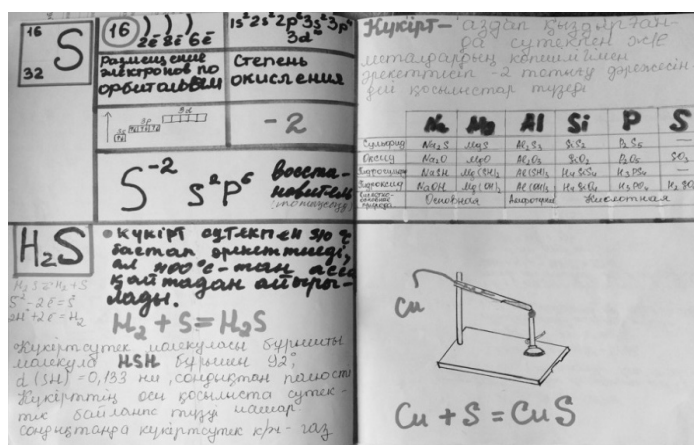 16
S
32
16
2ē 8ē 6ē
1s² 2s² 2p⁶ 3s² 3p⁴
3d⁰
Размещение
электронов по
орбиталям
Степень
окисления
3s
3p
3d
-2
S⁻² s²p⁶
восста-
новитель
H₂S
• күкірт сутекпен 310 °C
бастап әрекеттеседі,
ал 400°C-тан аса
қайтадан айыры-
лады.
S²⁻-2ē=S
2H⁺+2ē=H₂
H₂ + S = H₂S
Күкіртсутек молекуласы бұрышты
молекула HSH бұрышпен 92°,
d (SH) = 0,133 нм, сондықтан
Күкірттің осы қосылыста сутек-
тік байланыс түзуі нашар
сондықтанда күкіртсутек қ/ж - газ
Күкірт- аздап қыздырған-
да сутекпен және
металдардың көпшілігімен
әрекеттесіп -2 тотығу дәрежесін-
дей қосылыстар түзеді
Na Mg Al Si P S
Сульфид Na₂S MgS Al₂S₃ SiS₂ P₂S₅ —
Оксид Na₂O MgO Al₂O₃ SiO₂ P₂O₅ SO₃
NaSH Mg(SH)₂ Al(SH)₃ H₄SiS₄ H₃PS₄ —
Гидроксид NaOH Mg(OH)₂ Al(OH)₃ H₄SiO₄ H₃PO₄
Основная Амфотерн Кислотная
Cu
Cu + S = CuS